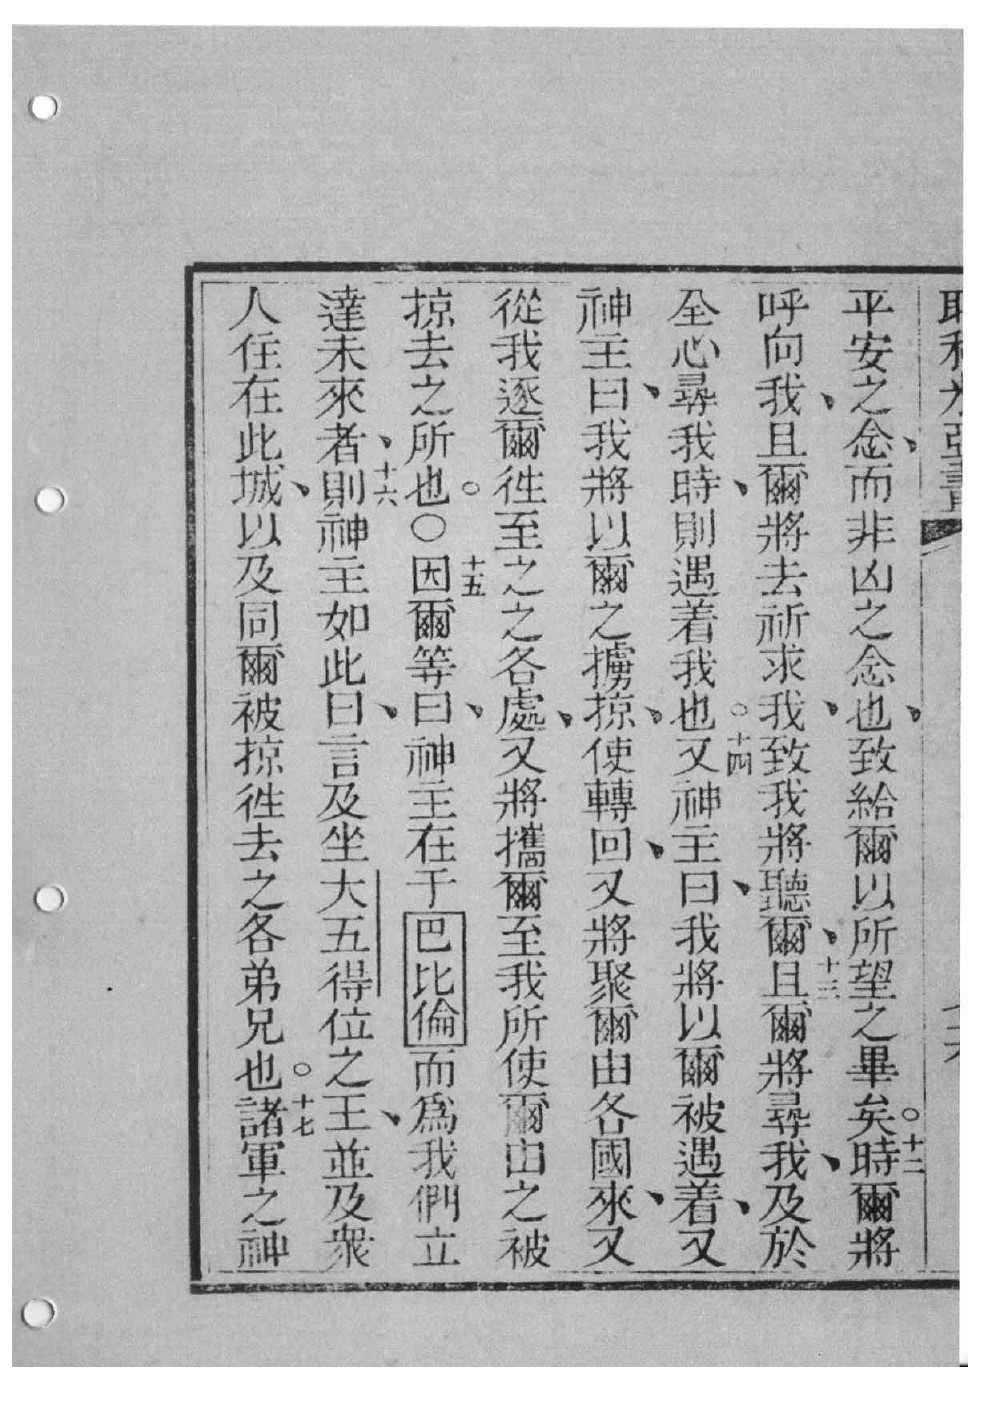 平安之念、而非凶之念也、致給爾以所望之畢矣。十二時爾將
呼向我、且爾將去祈求我、致我將聽爾、十三且爾將尋我、及於
全心尋我時、則遇着我也。十四又神主曰、我將以爾被遇着、又
神主曰、我將以爾之擄掠、使轉回、又將聚爾由各國來、又
從我逐爾徃至之之各處、又將攜爾至我所使爾由之被
掠去之所也。〇十五因爾等曰、神主在于巴比倫而爲我們立
達未來者、十六則神主如此曰、言及坐大五得位之王、並及衆
人住在此城、以及同爾被掠徃去之各弟兄也。十七諸軍之神